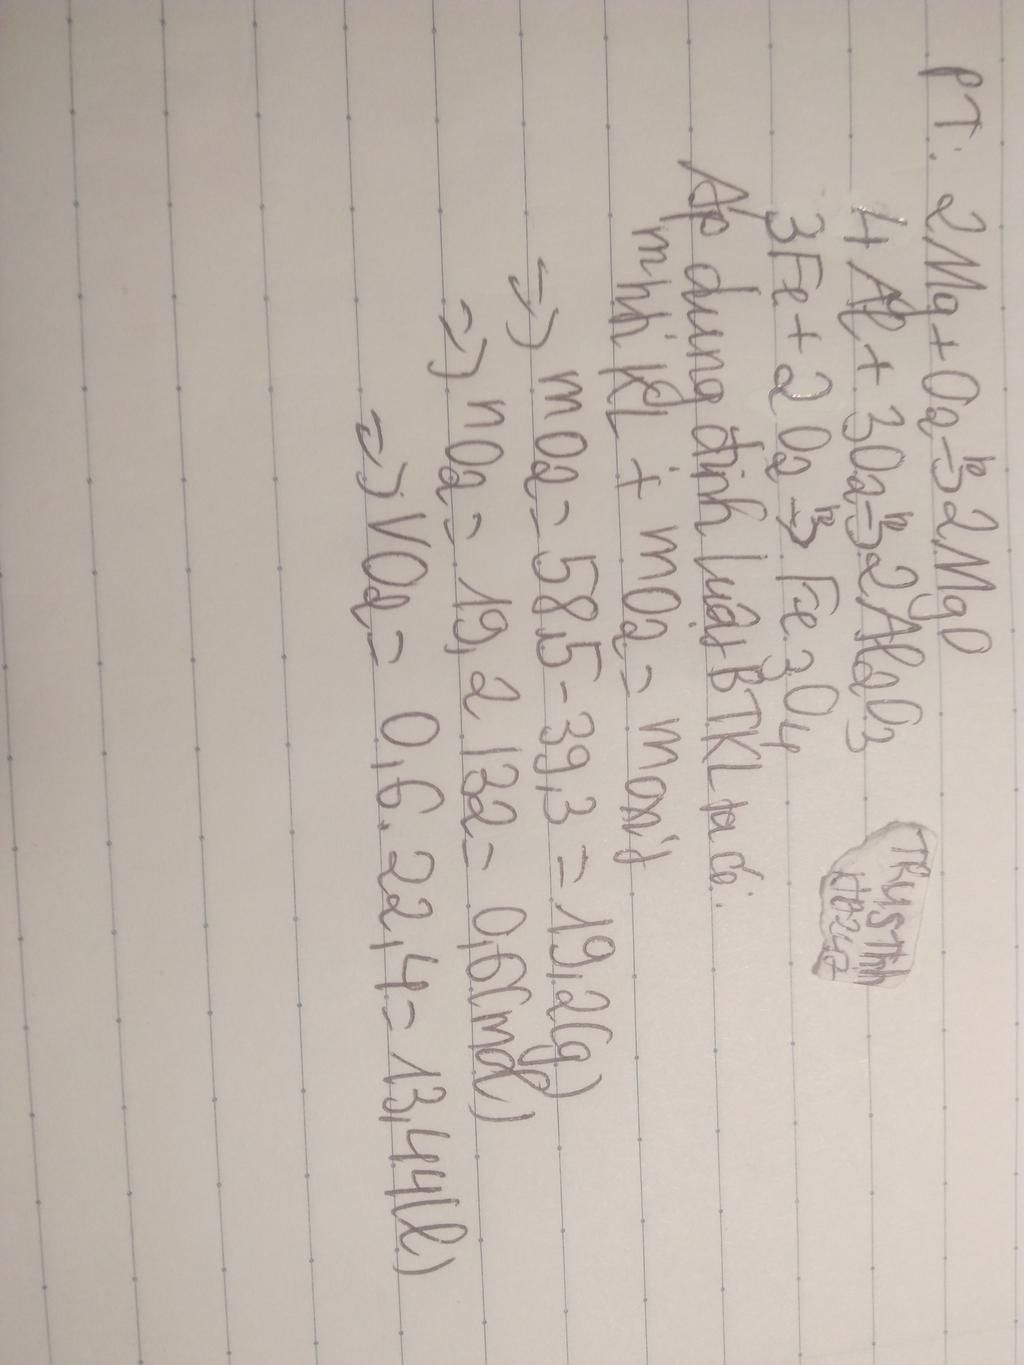 PT: 2Mg + O2 → 2MgO
to
4Al + 3O2 → 2Al2O3
to
3Fe + 2O2 → Fe3O4
to
Áp dụng định luật BTKL ta có:
mhh KL + mO2 = moxit
=> mO2 = 58,5 - 39,3 = 19,2(g)
=> nO2 = 19,2 : 32 = 0,6(mol)
=> VO2 = 0,6. 22,4 = 13,44(l)